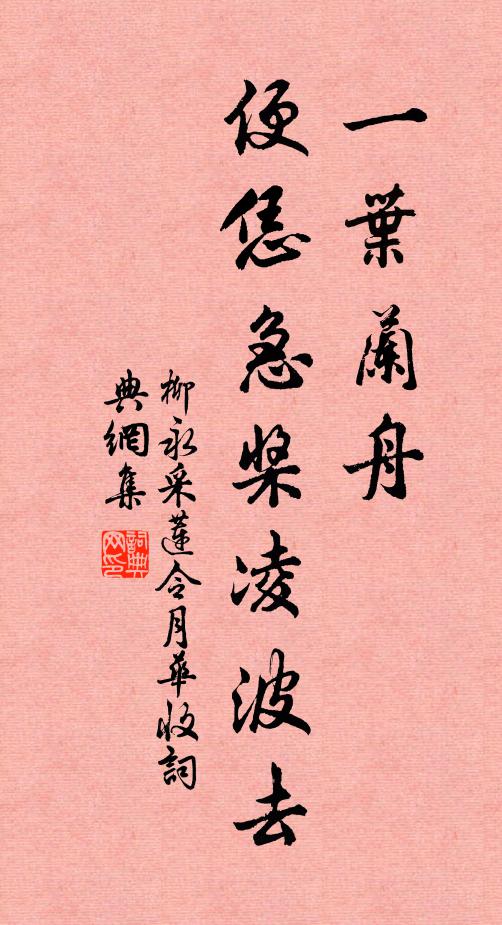 一葉蘭舟
便恁急槳凌波去
柳永采蓮令月華收詞
典網集
詞典網印